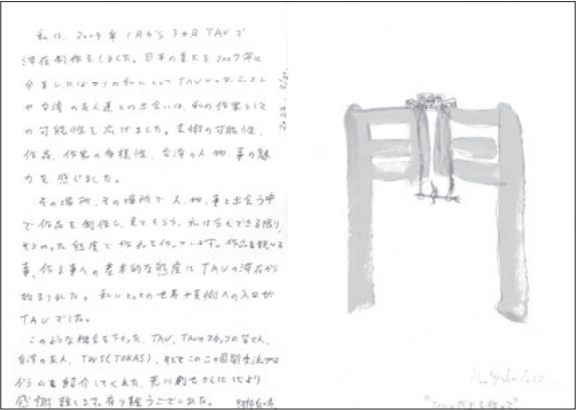 私は、2009年1月から3ヶ月TAVで
滞在制作をしました。日本の美大を2007年に
卒業したばかりの私にとってTAVでの
や台湾の友人達との出会いは、私の作家として
の可能性を広げました。芸術の可能性、
作品、作家の多様性、台湾の人、物、事の魅
力を感じました。
その場所、その場所で、人、物、事と出会う中
で作品を制作し、見てもらう。私は今もできる限り
そういった態度で作品を作っています。作品を観せる
事、作る事への基本的な態度はTAVの滞在から
始まりました。私にとっての世界や美術への入口が
TAVでした。
このような機会を下さった、TAV、TAVのスタッフの皆さん、
台湾の友人、TWS(TOKAS)、そしてこの二国間交流プロ
グラムを紹介してくれた、さんに心より
感謝致します。有り難うございました。
2022. 5/20.
2022.